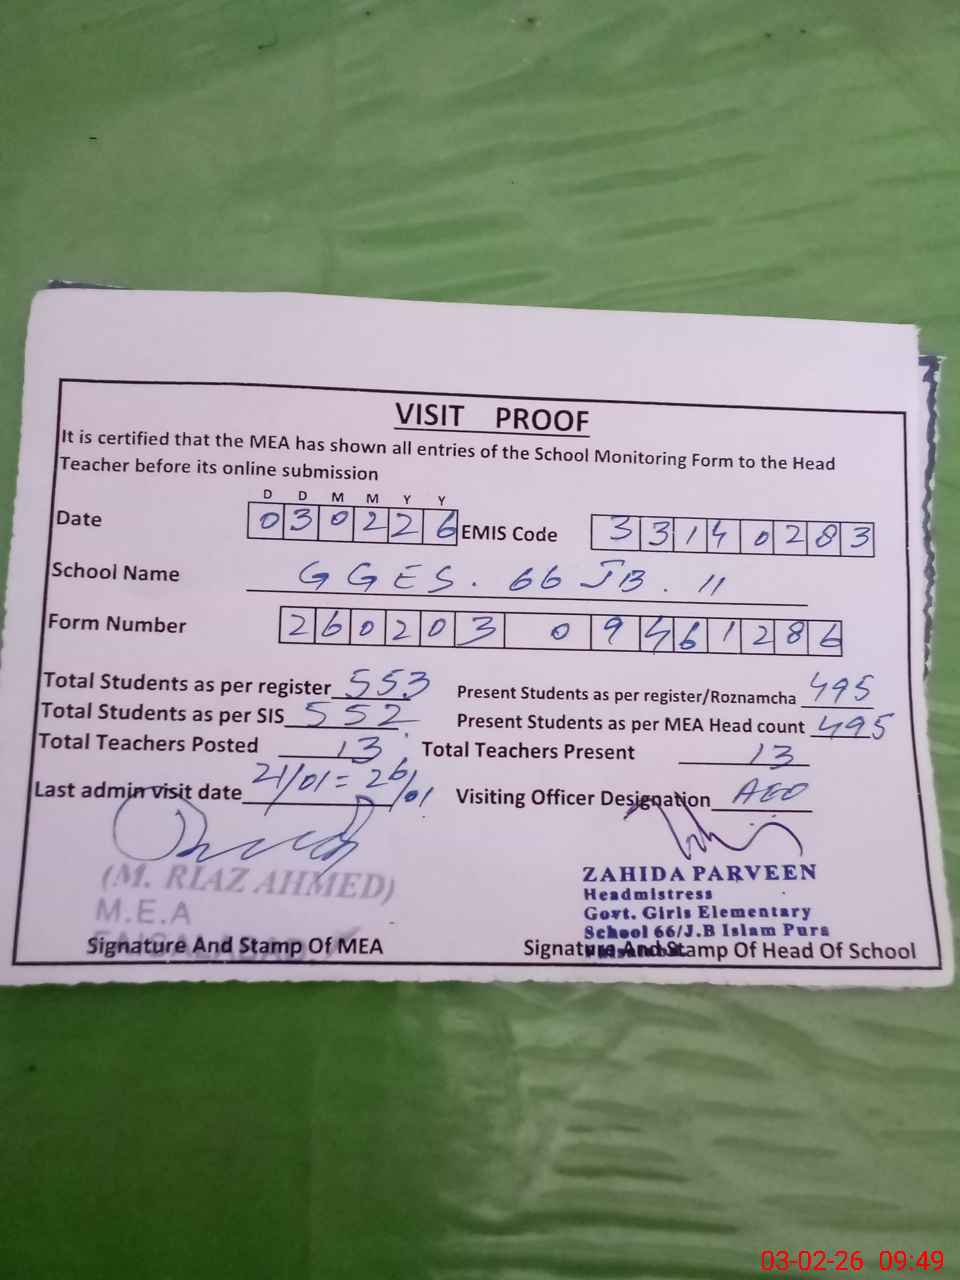 VISIT PROOF
It is certified that the MEA has shown all entries of the School Monitoring Form to the Head
Teacher before its online submission
D D M M Y Y
Date 0 3 0 2 2 6 EMIS Code 3 3 1 4 0 2 8 3
School Name G G E S . 66 JB . 11
Form Number 2 6 0 2 0 3 0 9 4 6 1 2 8 6
Total Students as per register 553 Present Students as per register/Roznamcha 495
Total Students as per SIS 552 Present Students as per MEA Head count 495
Total Teachers Posted 13 Total Teachers Present 13
Last admin visit date 21/01=26 Visiting Officer Designation AEO
(M. RIAZ AHMED)
M.E.A
Signature And Stamp Of MEA
ZAHIDA PARVEEN
Headmistress
Govt. Girls Elementary
School 66/J.B Islam Pura
Signature And Stamp Of Head Of School
03-02-26 09:49